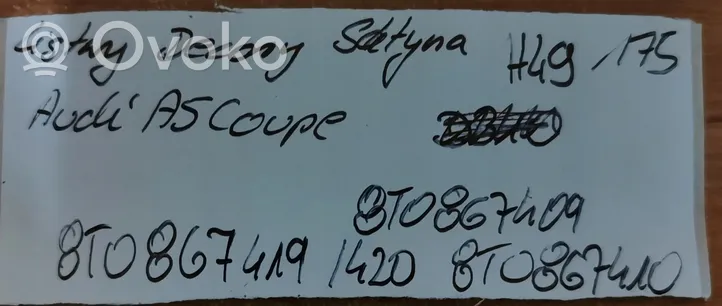 Listwy Decory Satyna H49 175
Ovoko
Audi A5 Coupe
8T0867409
8T0867419 /420 8T0867410